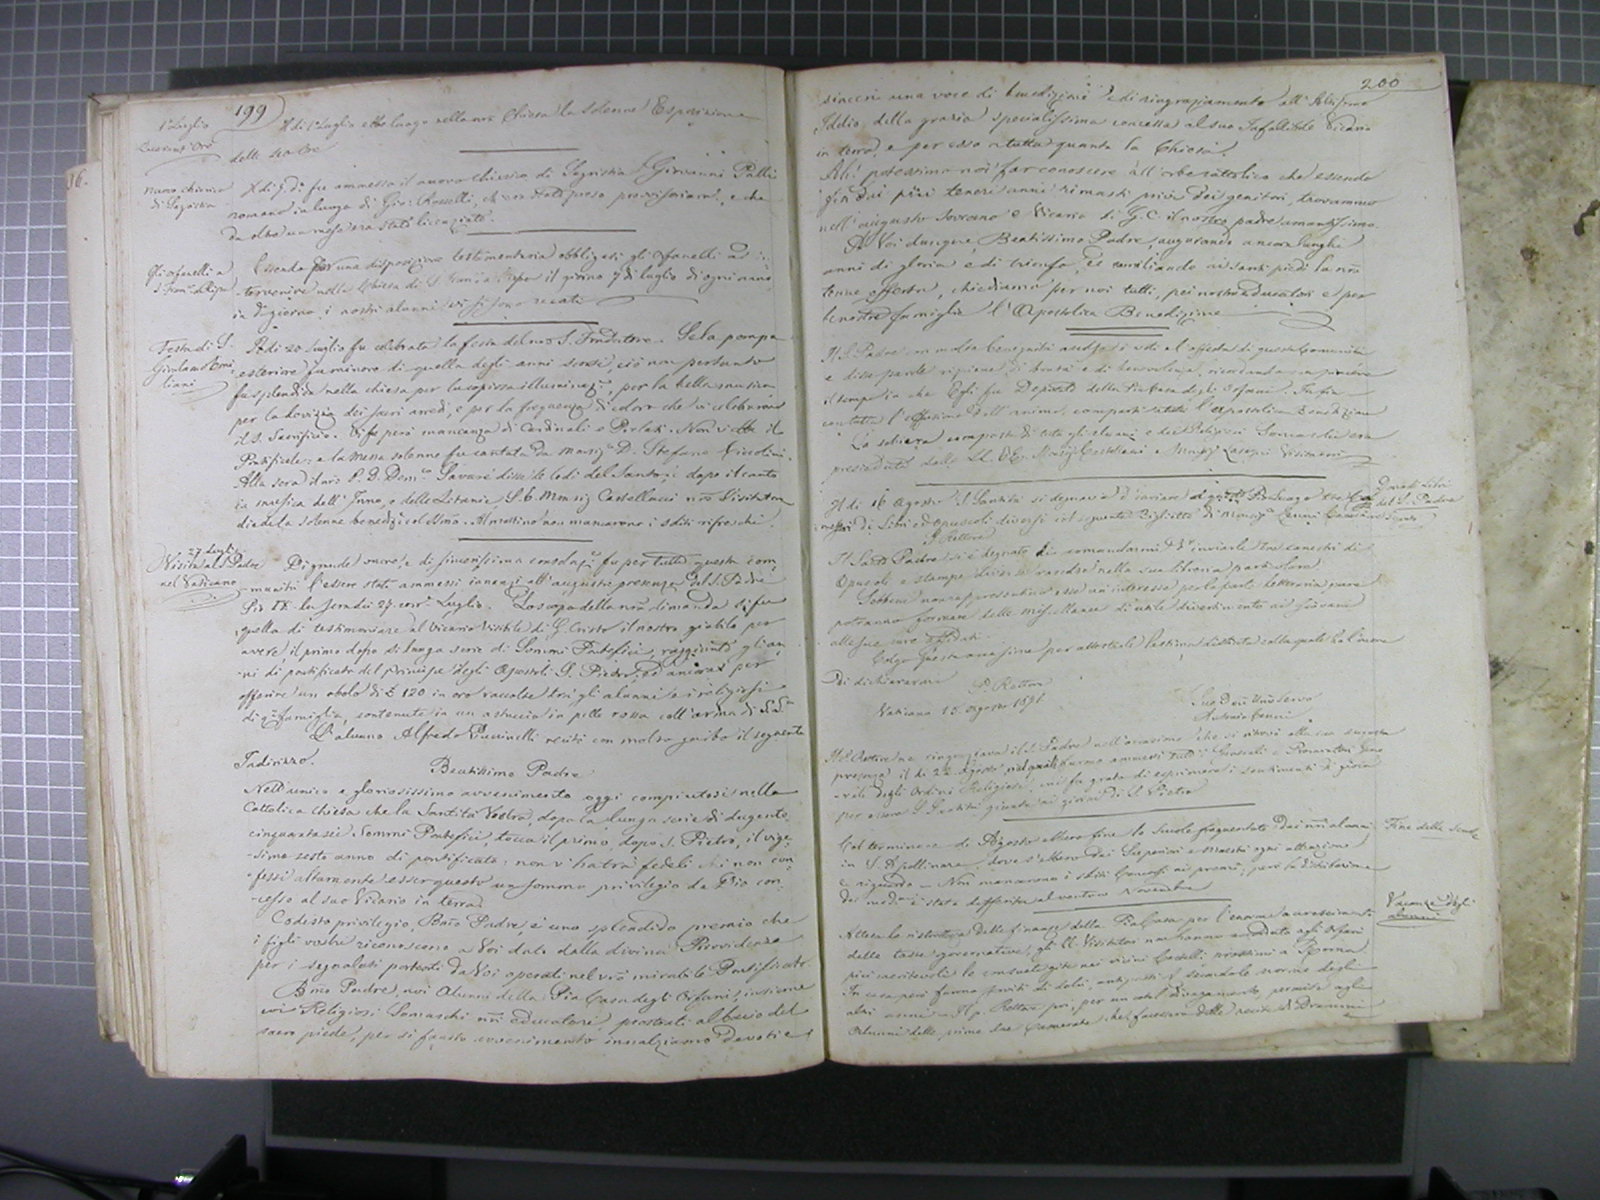 199
1 Luglio
Il dì 1° Luglio ebbe luogo nella nra Chiesa la solenne Esposizione
delle 40 Ore
nuovo chierico
di Sagrestia
Il dì fu ammesso il nuovo Chierico di Sagrestia Giovanni
romano in luogo di Gio: Rosselli, che era stato preso provvisoriam.e, e che
da oltre un mese era stato licenziato.
Gli orfanelli a
S. Fran.co a Ripa
Essendo per una disposizione testamentaria obbligati gli Orfanelli a in-
tervenire nella Chiesa di S. Franc.o a Ripa il giorno 7 di luglio di ogni anno
in d.o giorno i nostri alunni vi si sono recati
Festa di S.
Girolamo Emi
liani
Il dì 20 Luglio fu celebrata la festa del nro S. Fondatore. Se la pompa
esteriore fu minore di quella degli anni scorsi, ciò non pertanto
fu splendida nella chiesa per la copiosa illuminaz.e per la bella musica
per la dovizia dei sacri arredi, e per la frequenza di coloro che vi celebrarono
il S. Sacrificio. Vi fu però mancanza di Cardinali e Prelati. Non vi ebbe il
Pontificale: e la Messa solenne fu cantata da monsig.r D. Stefano Ciccolini.
Alla sera il P. D. Dom.co Savarè disse le lodi del Santo, e dopo il canto
in musica dell'Inno e delle Litanie, S. E. Mons.r Castellacci nro Visitatore
diede la solenne benediz. col Ssmo. Al mattino non mancarono i soliti rinfreschi.
27 Luglio
Visita al S. Padre
nel Vaticano
Di grande onore, e di sincerissima consolaz.e fu per tutta questa com-
munità l'essere stati ammessi innanzi all'augusta presenza del S. Padre
Pio IX. la sera dei 27 corr.e Luglio. Lo scopo della nra dimanda si fu
quello di testimoniare al Vicario Visibile di G. Cristo il nostro giubilo per
avere il primo dopo sì lunga serie di Sommi Pontefici, raggiunti gli an
ni di pontificato del principe degli Apostoli S. Pietro, ed ancora per
offerire un obolo di £ 120 in oro raccolte tra gli alunni e i religiosi
di q.ta famiglia, contenute in un astuccio in pelle rossa coll'arma di S. S.tà
L'alunno Alfredo Puccinelli recitò con molto garbo il seguente
Indirizzo.
Beatissimo Padre
Nell'unico e gloriosissimo avvenimento oggi compiutosi nella
Cattolica Chiesa che la Santità Vostra, dopo la lunga serie di dugento
cinquantasei Sommi Pontefici, tocca il primo, dopo S. Pietro, il vige-
simo sesto anno di pontificato: non v'ha tra fedeli chi non con
fessi altamente esser questo un sommo privilegio da Dio con-
cesso al suo Vicario in terra.
Codesto privilegio, Bmo Padre, è uno splendido premio che
i figli vostri riconoscono a Voi dato dalla divina Provvidenza
per i segnalati portenti da Voi operati nel vro mirabile Pontificato
Bmo Padre, noi Alunni della Pia Casa degli Orfani, insieme
coi Religiosi Somaschi nri educatori, prostrati al bacio del
sacro piede, per sì fausto avvenimento innalziamo devoti e
200
sinceri una voce di benedizione e di ringraziamento all'Altissimo
Iddio, della grazia specialissima concessa al suo Infallibile Vicario
in terra, e per esso a tutta quanta la Chiesa.
Ah! potessimo noi far conoscere all'orbe cattolico che essendo
fin dai più teneri anni rimasti privi dei genitori, trovammo
nell'augusto Sovrano e Vicario di G. C. il nostro padre amantissimo.
A Voi dunque, Beatissimo Padre, augurando ancora lunghi
anni di gloria e di trionfo, ed umiliando ai santi piedi la nra
tenue offerta, chiediamo per noi tutti, pei nostri educatori e per
le nostre famiglie l'Apostolica Benedizione
Il S. Padre con molta benignità i voti e l'offerta di questa Comunità
e disse parole ripiene di bontà e di benevolenza, ricordando con piacere
il tempo in che Egli fu Deputato della Pia Casa degli Orfani. Infine
con tutta l'effusione dell'animo, compartì a tutti l'Apostolica Benedizione
La schiera composta di tutti gli alunni e dei Religiosi Somaschi era
presieduta dalle LL. EE. Monsig. Castellacci e Monsig. Visitatori
Dono di Libri
del S. Padre
Il dì 16 Agosto S. Santità si degnava d'inviare al P. Rettore tre
di Libri ed opuscoli diversi col seguente Biglietto di Monsig.r Cenni
P. Rettore
Il Santo Padre si è degnato di comandarmi d'inviarle tre canestri di
Opuscoli e stampe diverse raccolte nella sua libreria particolare.
Sebbene non rappresentino esse un interesse per la parte letteraria, pure
potranno formare delle miscellanee di utile divertimento ai giovani
alle sue cure affidati.
Colgo questa occasione per attestarle la stima distinta colla quale ho l'onore
Di dichiararmi
P. Rettore
Vaticano 15. Agosto 1871
Suo Devmo Servo
Antonio Cenni
Il P. Rettore ne ringraziava il S. Padre nell'occasione che si ritrovò alla sua augusta
presenza il dì 22 Agosto, nel quale furono ammessi tutti i Generali e Procuratori Gene
rali degli Ordini Religiosi, cui fu grato di esprimere i sentimenti di gioia
per essere S. Santità giunta ai giorni di S. Pietro
Fine delle Scuole
Col terminare di Agosto ebbero fine le Scuole frequentate dai nri alunni
in S. Apollinare, dove s'ebbero dai Superiori e Maestri ogni attenzione
e riguardo. Non mancarono i soliti Concorsi ai premi, però la distribuzione
dei med.i è stata differita al venturo Novembre
Vacanze degli
alunni
Attesa la ristrettezza delle finanze della Pia Casa per l'enorme accrescimento
delle tasse governative, gli Ill. Visitatori non hanno accordato agli Orfani
più meritevoli le consuete gite nei vicini Castelli prossimi a Roma
In casa però furono forniti di dolci, antipasti secondo norma degli
altri anni. Il p. Rettore poi, per un onesto divagamento, permise agli
Alunni delle prime due Camerate che facessero delle recite di Drammi